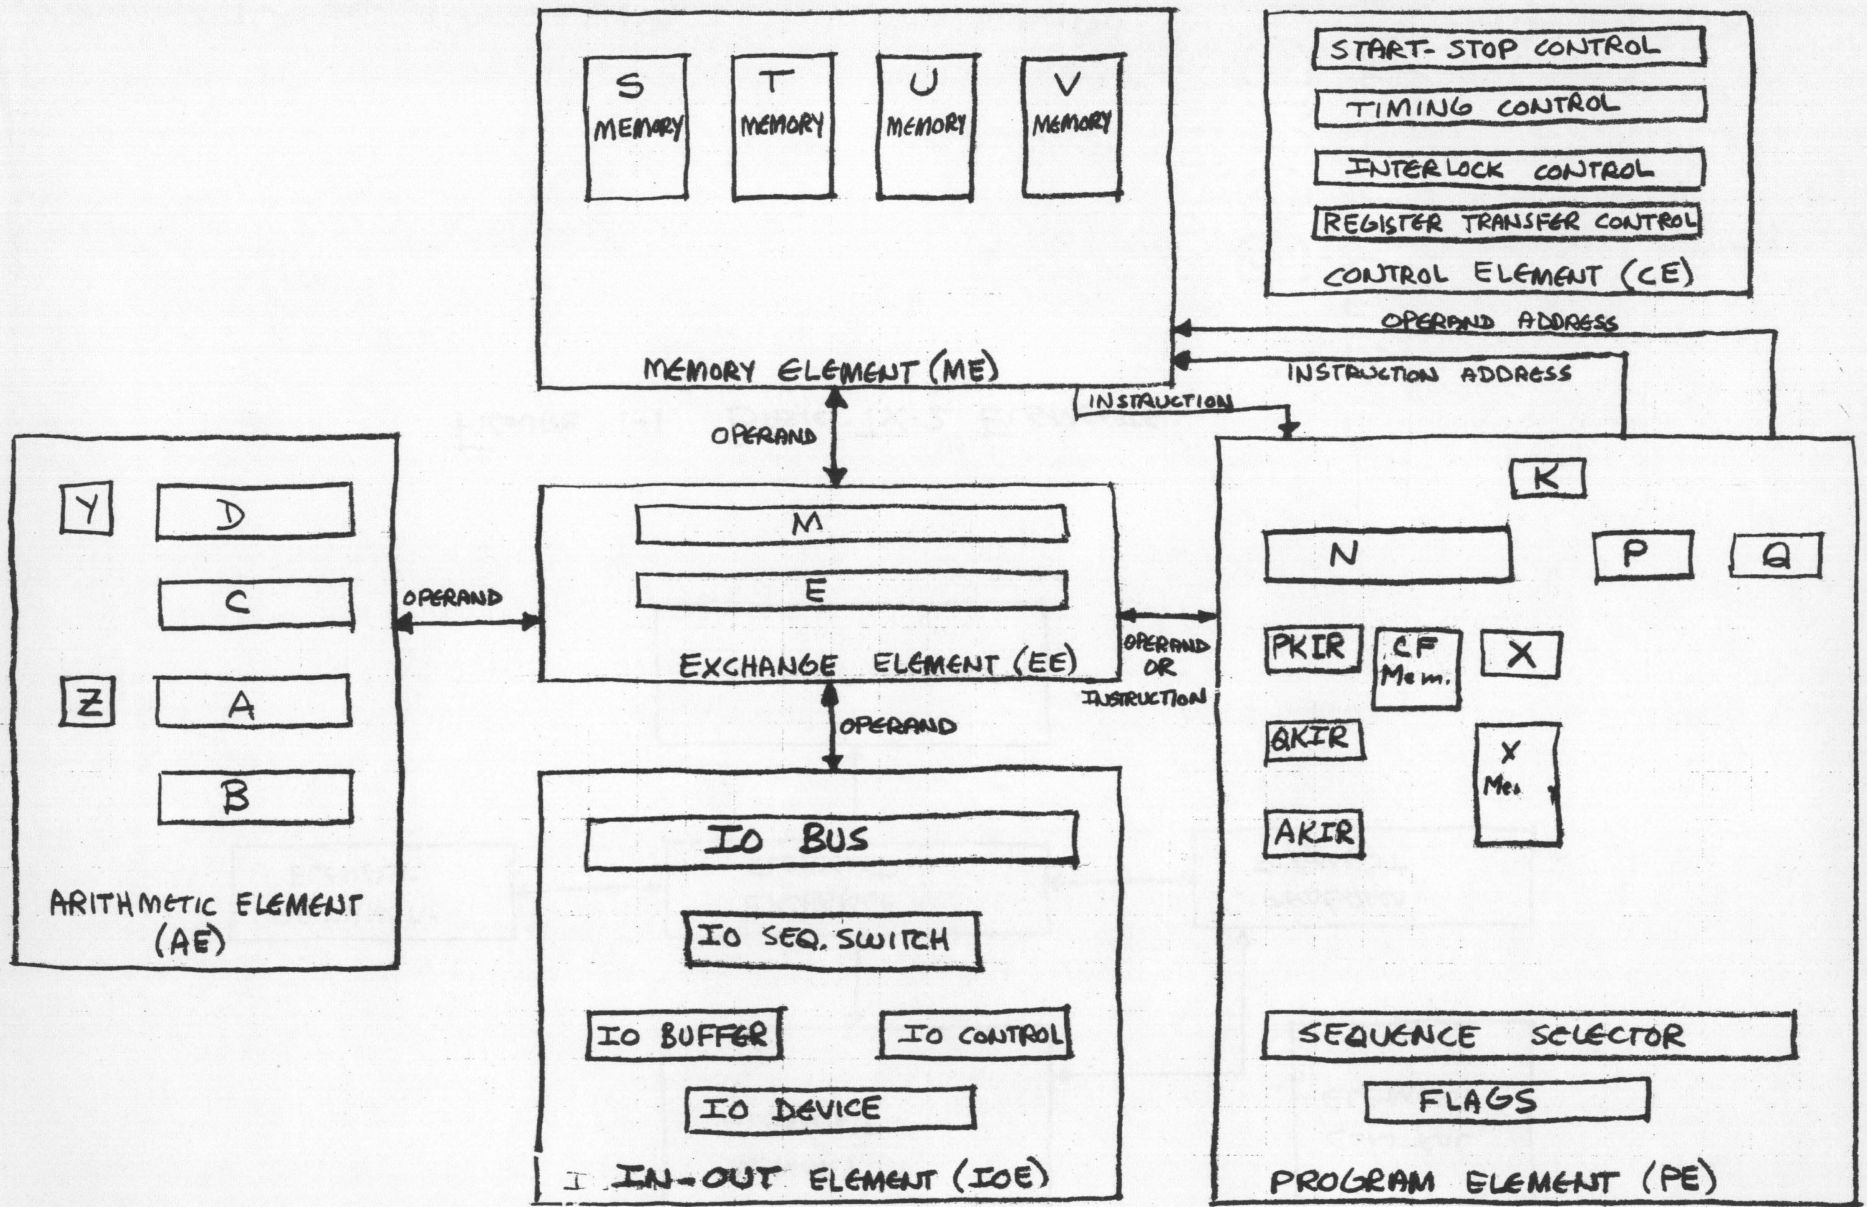 S
MEMORY
T
MEMORY
U
MEMORY
V
MEMORY
MEMORY ELEMENT (ME)
START-STOP CONTROL
TIMING CONTROL
INTERLOCK CONTROL
REGISTER TRANSFER CONTROL
CONTROL ELEMENT (CE)
OPERAND ADDRESS
INSTRUCTION ADDRESS
INSTRUCTION
OPERAND
Y
D
C
Z
A
B
ARITHMETIC ELEMENT
(AE)
OPERAND
M
E
EXCHANGE ELEMENT (EE)
OPERAND
OR
INSTRUCTION
OPERAND
IO BUS
IO SEQ. SWITCH
IO BUFFER
IO CONTROL
IO DEVICE
IN-OUT ELEMENT (IOE)
K
N
P
Q
PKIR
CF
Mem.
X
QKIR
X
AKIR
SEQUENCE SELECTOR
FLAGS
PROGRAM ELEMENT (PE)